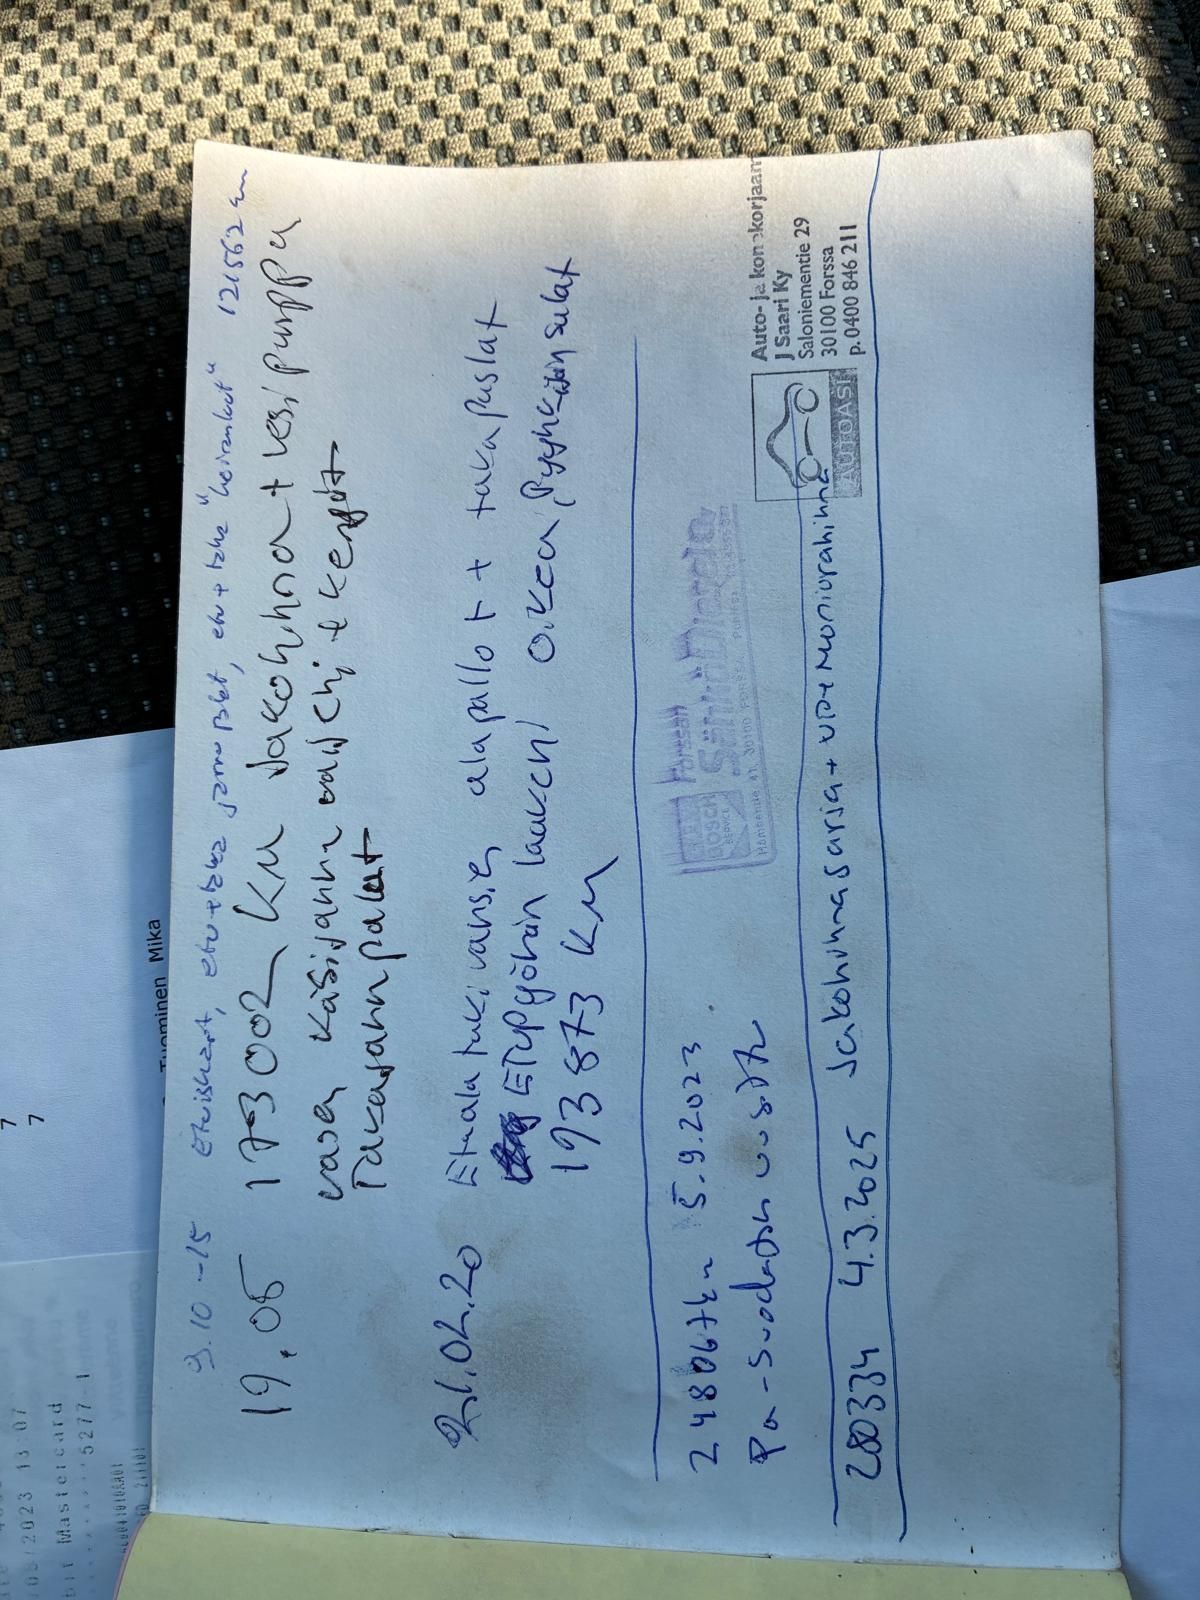 9.10-15 etu+taka jarrupalat, etu+taka 121562 km
19.05 173002 km Jakohihna + vesipumppu
vasen käsijarru vaijeri + kengät
Takajarrupalat
21.02.20 Etualatukivarsien alapallot + takapuslat
ETUPyörän laakeri oikea, Pyyhkijän sulat
193873 km
248067km 5.9.2023
Pa-suodatin vaihto
Forssan
BOSCH
SERVICE
SähköDiesela
Hämeentie 41, 30100 FORSSA
280334 4.3.2025 Jakohihnasarja + VP + Moniurahihna
AUTOASI
Auto- ja konekorjaam
J Saari Ky
Saloniementie 29
30100 Forssa
p. 0400 846 211
Tuominen Mika
7
7
/2023 13:07
bit Mastercard
5277-1